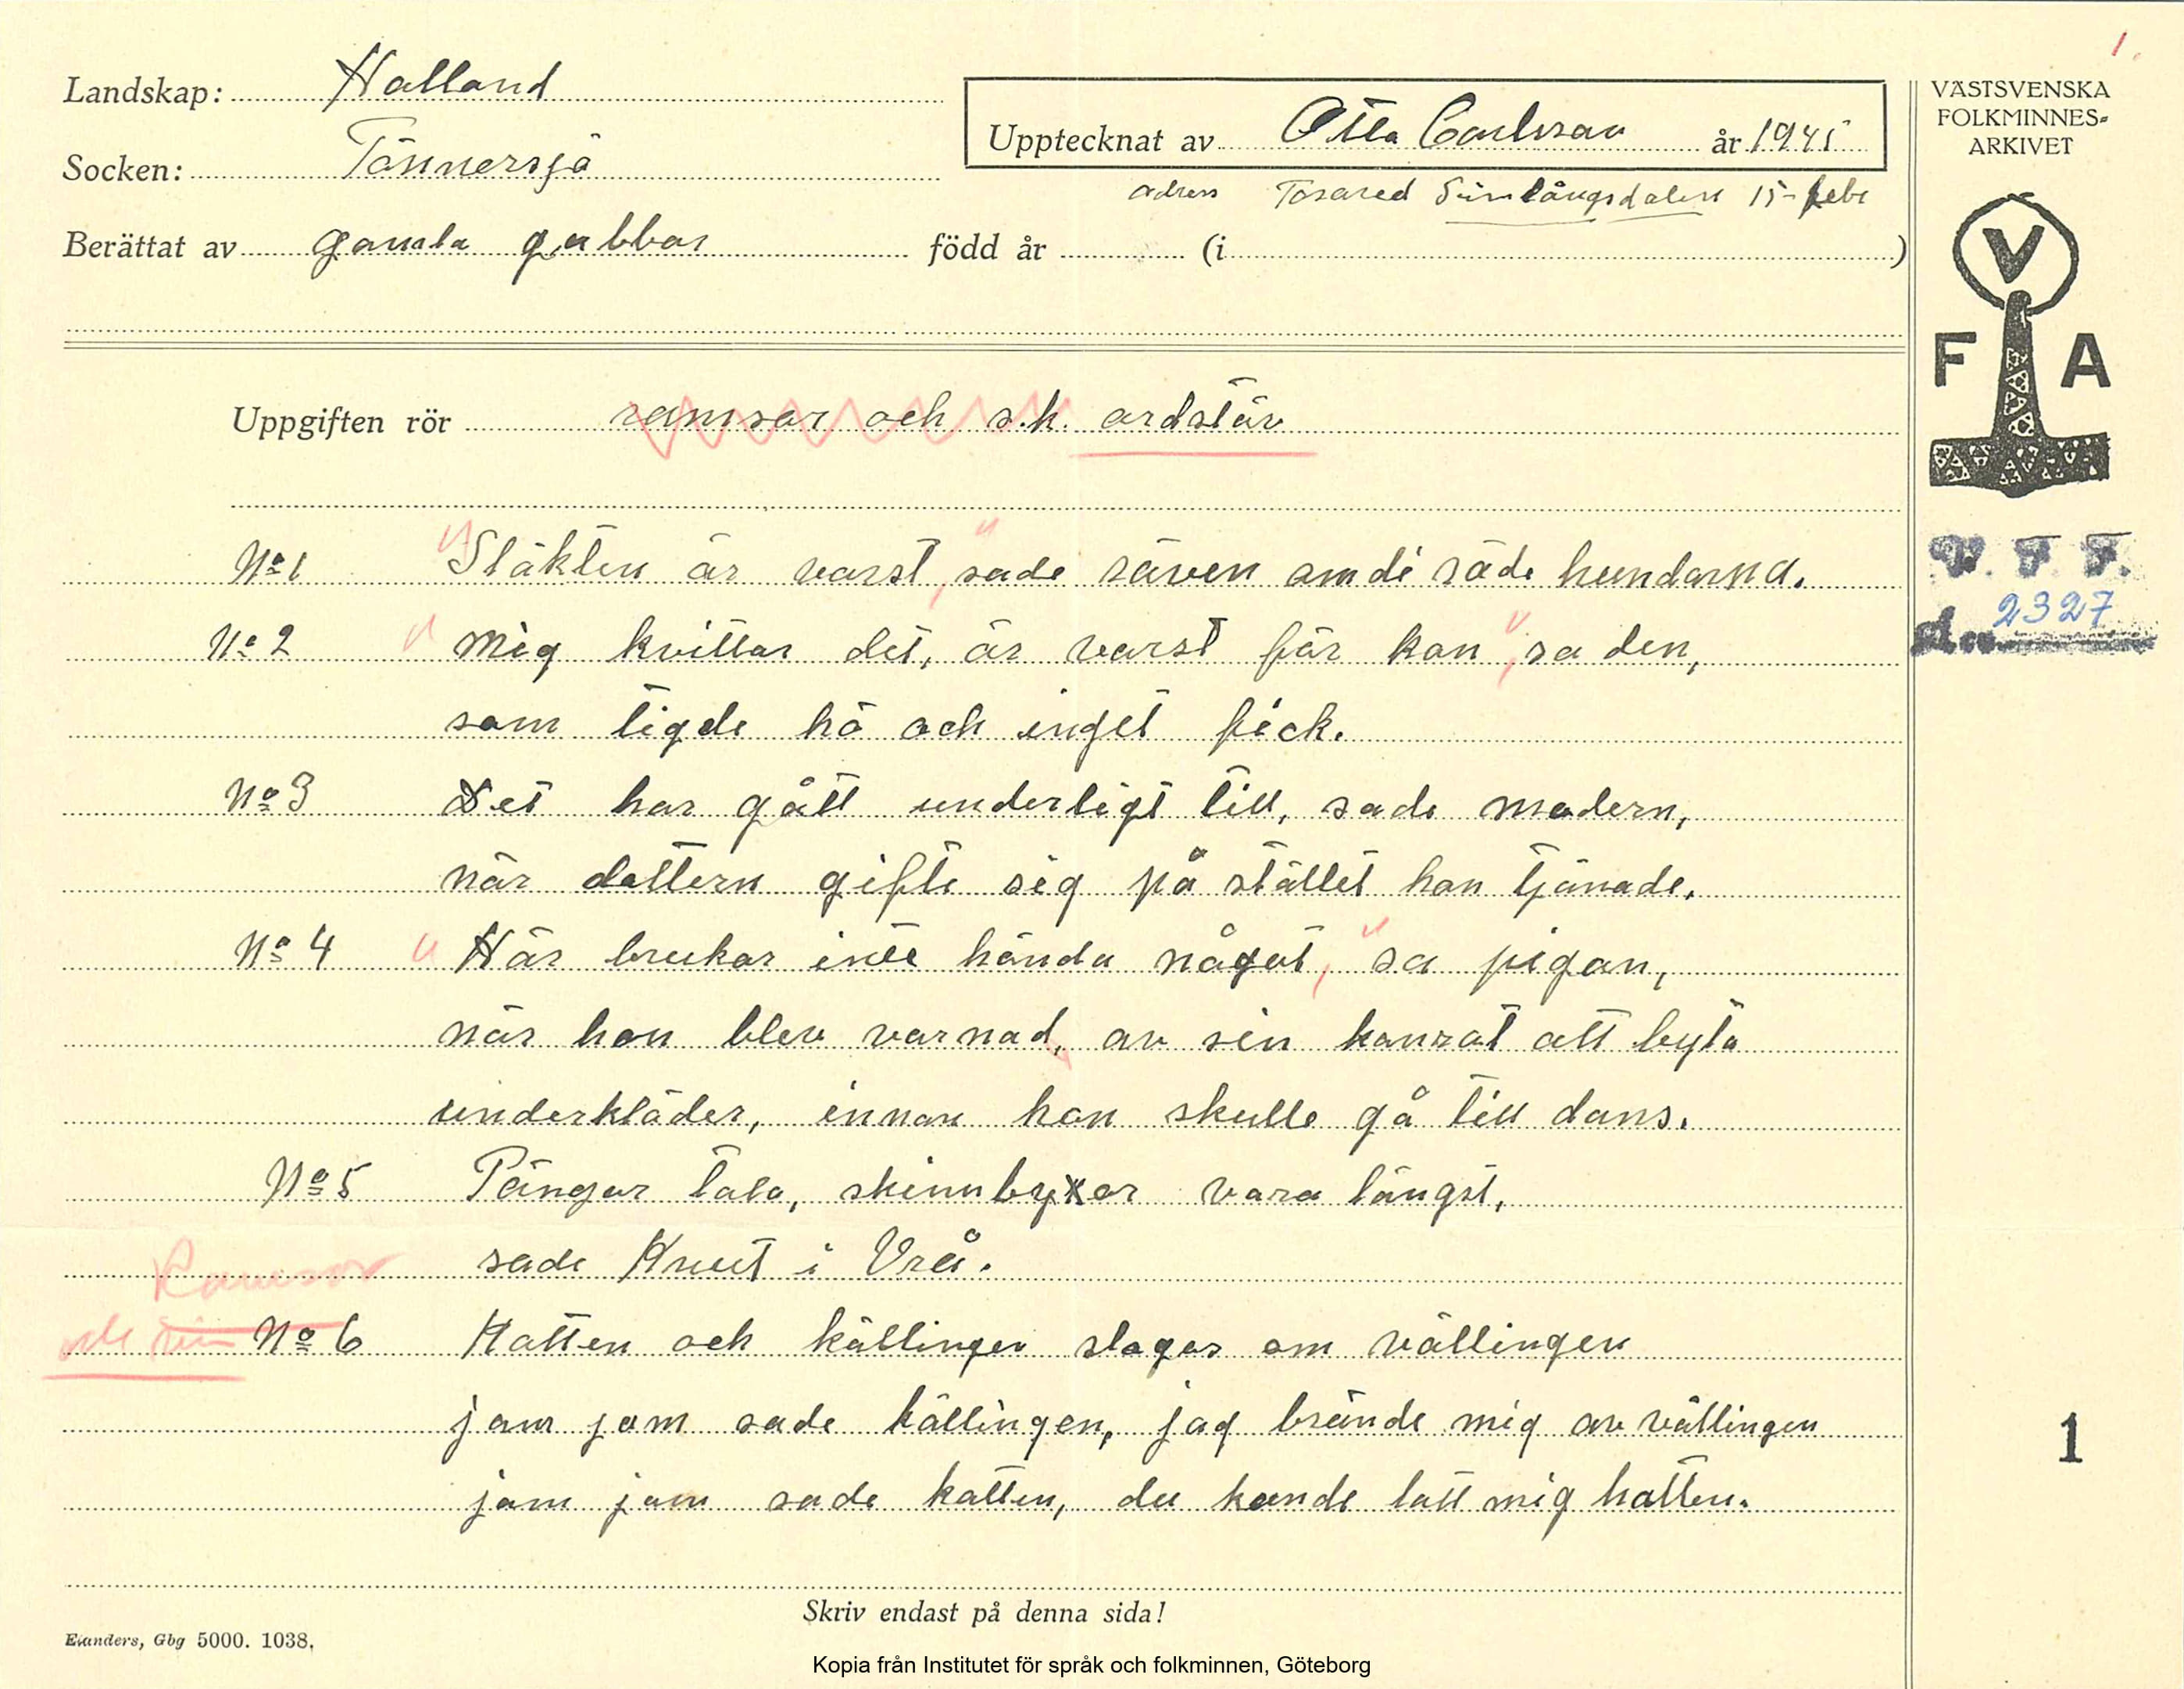 1.
Landskap: Halland
Socken: Tönnersjö
Berättat av gamla gubbar född år (i )
Upptecknat av Otto Carlsson år 1945
adress Tosared Simlångsdalen 15 febr
VÄSTSVENSKA
FOLKMINNES-
ARKIVET
V
F A
V. F. F.
2327
Uppgiften rör ramsor och s.k. ordstäv
No 1 "Släkten är värst," sade räven om di röde hundarna.
No 2 "Mig kvittar det, är värst för kon", sa den,
som tigde hö och inget fick.
No 3 Det har gått underligt till, sade modern,
när dottern gifte sig på stället hon tjänade.
No 4 "Här brukar inte hända något," sa pigan,
när hon blev varnad, av sin kamrat att byta
underkläder, innan hon skulle gå till dans.
No 5 Pängar tala, skinnbyxor vara längst,
sade Knut i Vrå.
Ramsor
och rim
No 6 Katten och källingen slogos om vällingen
jam jam sade källingen, jag brände mig av vällingen
jam jam sade katten, du kunde lått mig hatten.
1
Skriv endast på denna sida!
Elanders, Gbg 5000. 1038.
Kopia från Institutet för språk och folkminnen, Göteborg